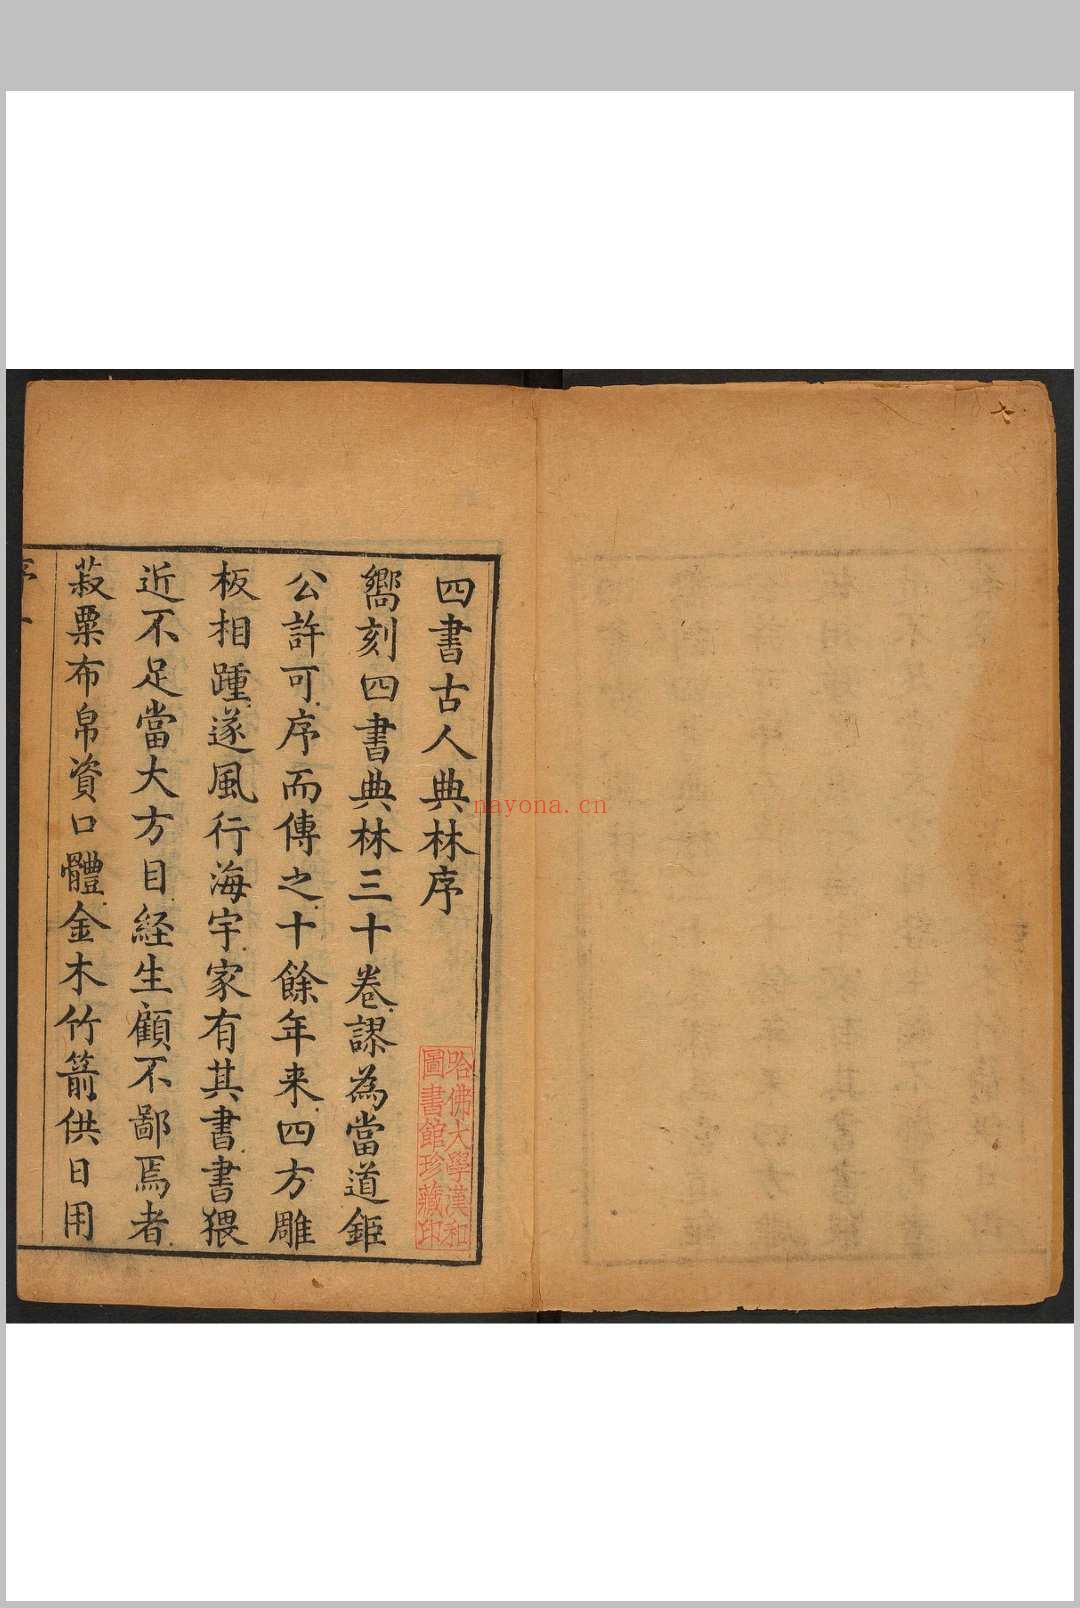 四書古人典林序
嚮刻四書典林三十卷謬為當道鉅
公許可序而傳之十餘年来四方雕
板相踵遂風行海宇家有其書書猥
近不足當大方目経生顧不鄙焉者
菽粟布帛資口體金木竹箭供日用
哈佛大學漢和
圖書館珍藏印
nayona.cn